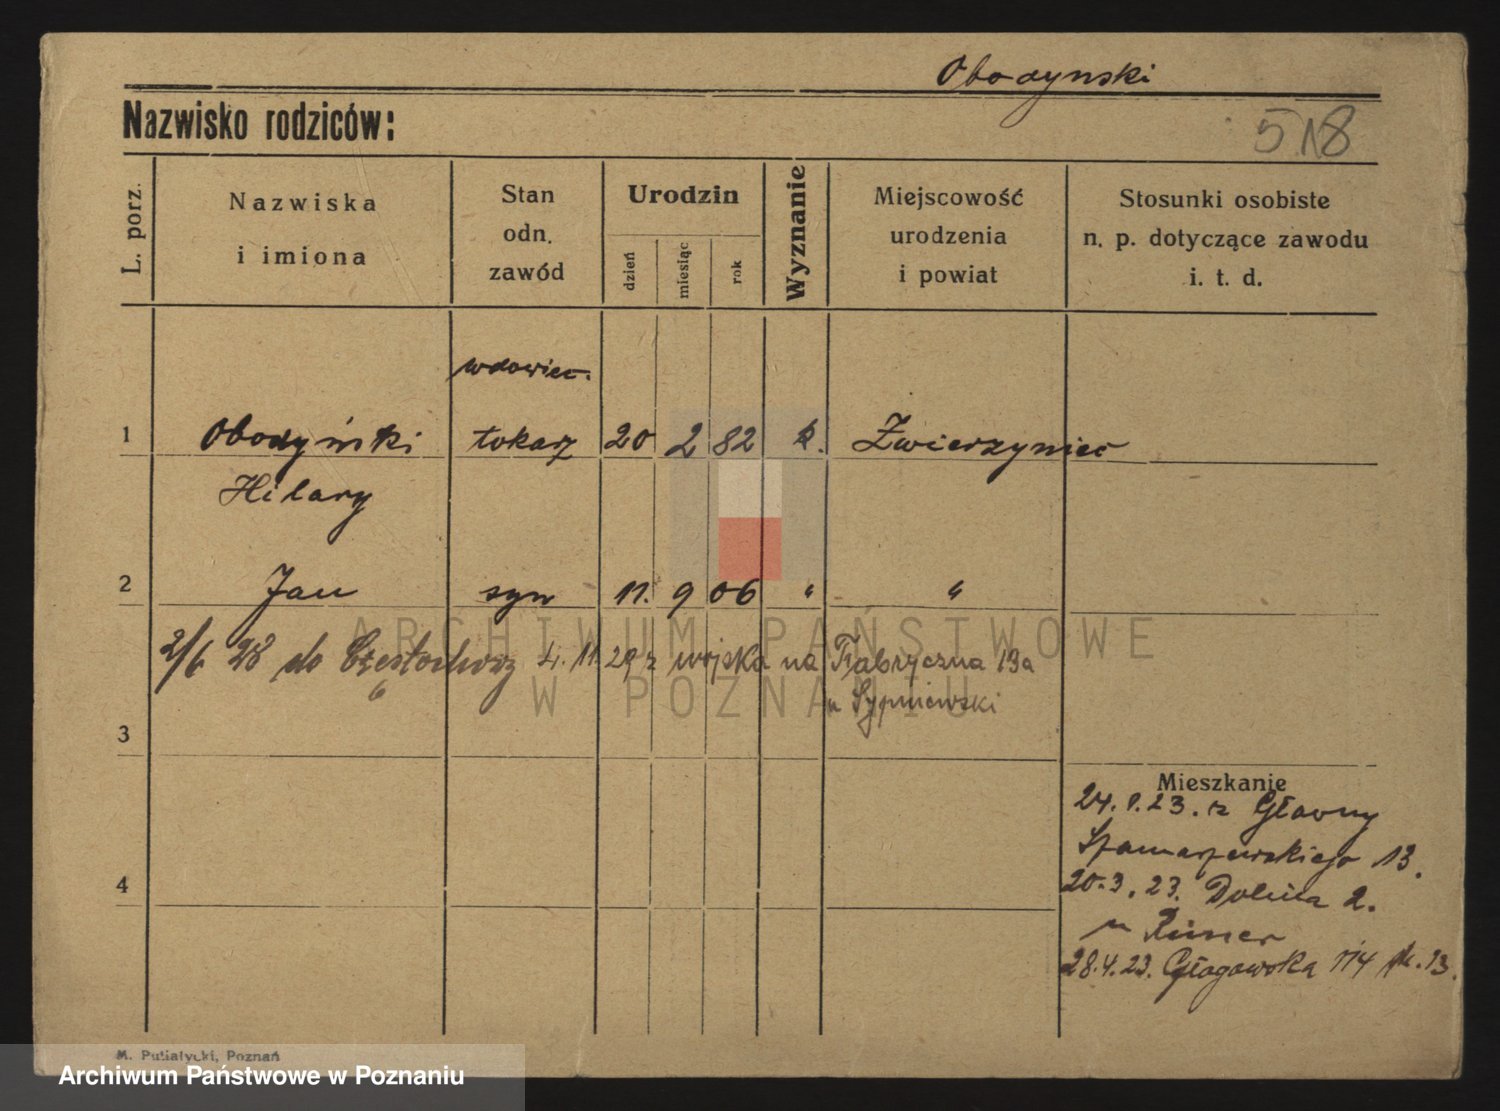 Obodynski
Nazwisko rodziców:
518
L. porz.
Nazwiska
i imiona
Stan
odn.
zawód
Urodzin
dzień
miesiąc
rok
Wyznanie
Miejscowość
urodzenia
i powiat
Stosunki osobiste
n. p. dotyczące zawodu
i. t. d.
wdowiec.
1 Obodyński tokarz 20 2 82 k. Zwierzyniec
Hilary
2 Jan syn 11. 9 06 " "
2/6 28 do Częstochowy 4. 11. 29 z wojska na Fabryczna 13a
u Sypniewski
3
Mieszkanie
24. 1. 23. z Główny
Szamarzewskiego 13.
20.3.23. Dolina 2.
u
28.4.23. Głogowska 114 m. 13.
4
M. Putiatycki, Poznań
ARCHIWUM PAŃSTWOWE
W POZNANIU
Archiwum Państwowe w Poznaniu